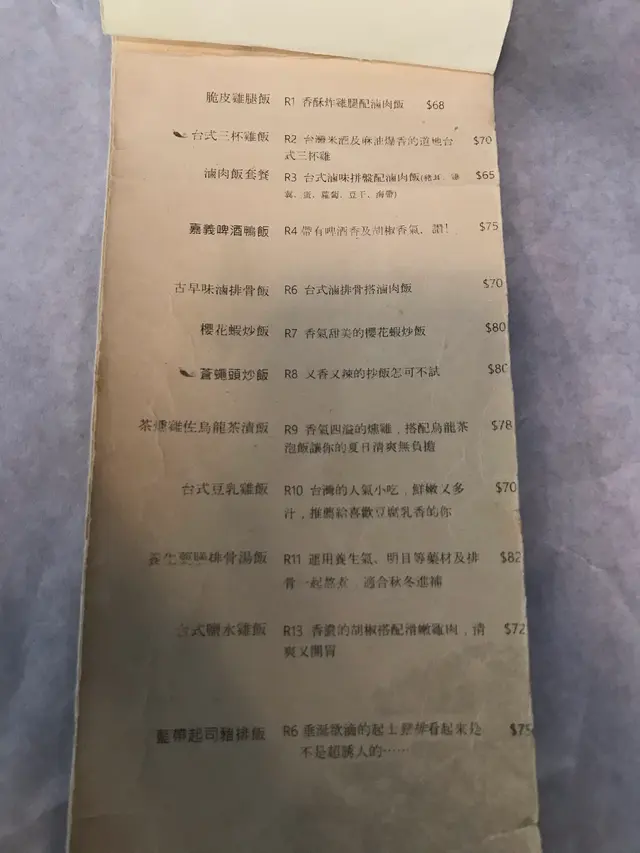 脆皮雞腿飯 R1 香酥炸雞腿配滷肉飯 $68
台式三杯雞飯 R2 台灣米酒及麻油爆香的道地台 $70
式三杯雞
滷肉飯套餐 R3 台式滷味拼盤配滷肉飯(豬耳、 $65
蛋、蘿蔔、豆干、海帶)
嘉義啤酒鴨飯 R4 帶有啤酒香及胡椒香氣，讚! $75
古早味滷排骨飯 R6 台式滷排骨搭滷肉飯 $70
櫻花蝦炒飯 R7 香氣甜美的櫻花蝦炒飯 $80
蒼蠅頭炒飯 R8 又香又辣的抄飯怎可不試 $80
茶燻雞佐烏龍茶漬飯 R9 香氣四溢的燻雞，搭配烏龍茶 $78
泡飯讓你的夏日清爽無負擔
台式豆乳雞飯 R10 台灣的人氣小吃，鮮嫩又多 $70
汁，推薦給喜歡豆腐乳香的你
養生藥膳排骨湯飯 R11 運用養生氣、明目等藥材及排 $82
骨一起熬煮，適合秋冬進補
台式鹽水雞飯 R13 香濃的胡椒搭配滑嫩雞肉，清 $72
爽又開胃
藍帶起司豬排飯 R6 垂涎欲滴的起士豬排看起來是 $75
不是超誘人的……